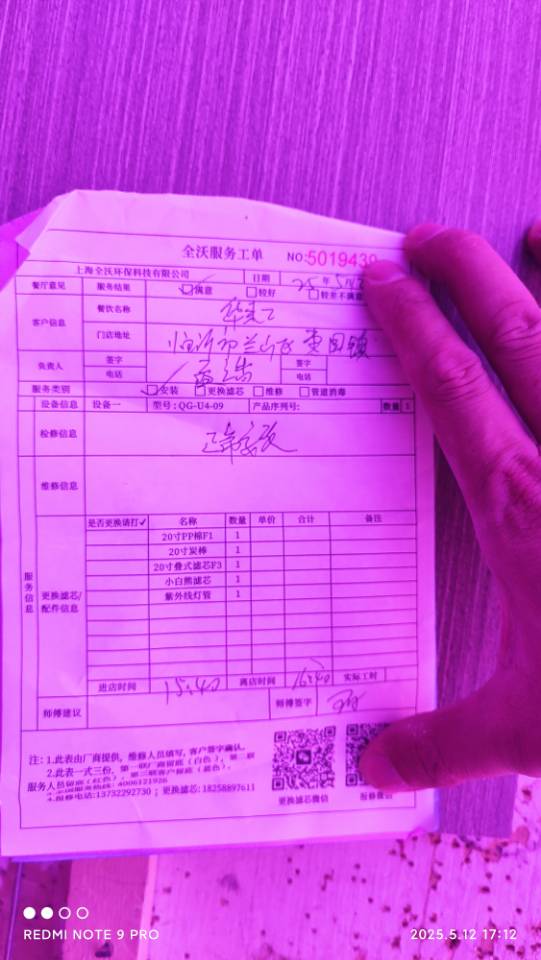 全沃服务工单 NO:5019439
上海全沃环保科技有限公司 日期 25 年
餐厅意见 服务结果 满意 较好 较差不满意
客户信息 餐饮名称
门店地址 临沂市兰山区 镇
负责人 签字 签字
电话 电话
服务类别 安装 更换滤芯 维修 管道消毒
设备信息 设备一 型号:QG-U4-09 产品序列号: 数量 1
检修信息 正常安装
维修信息
服务信息
更换滤芯/配件信息
是否更换请打✓ 名称 数量 单价 合计 备注
20寸PP棉F1 1
20寸炭棒 1
20寸叠式滤芯F3 1
小白熊滤芯 1
紫外线灯管 1
进店时间 15:40 离店时间 16:40 实际工时
师傅建议 师傅签字
注: 1.此表由厂商提供, 维修人员填写, 客户签字确认.
2.此表一式三份, 第一联厂商留底 (白色), 第二联
服务人员留底 (红色), 第三联客户留底 (蓝色).
4006121926
4.报修电话:13732292730 ; 更换滤芯:18258897611
更换滤芯微信 报修微信
REDMI NOTE 9 PRO
2025.5.12 17:12